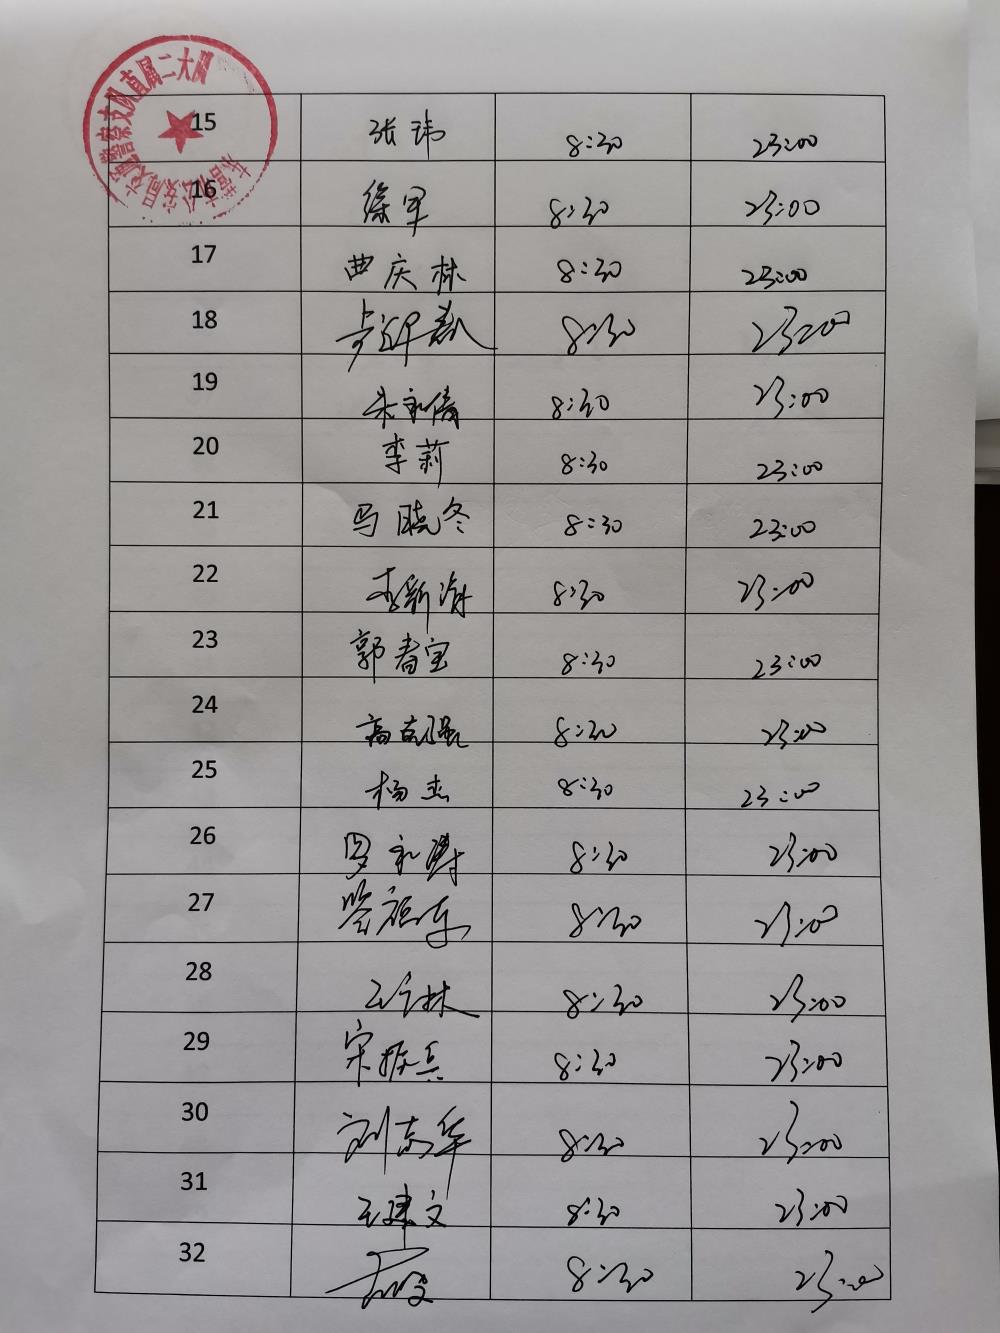 交通警察支队直属二大队
15 张玮 8:30 23:00
16 徐军 8:30 23:00
17 曲庆林 8:30 23:00
18 8:30 23:00
19 朱永俊 8:30 23:00
20 李莉 8:30 23:00
21 马晓冬 8:30 23:00
22 李新海 8:30 23:00
23 郭春宝 8:30 23:00
24 高克强 8:30 23:00
25 杨杰 8:30 23:00
26 罗永 8:30 23:00
27 8:30 23:00
28 林 8:30 23:00
29 宋振兵 8:30 23:00
30 刘志华 8:30 23:00
31 王建文 8:30 23:00
32 8:30 23:00